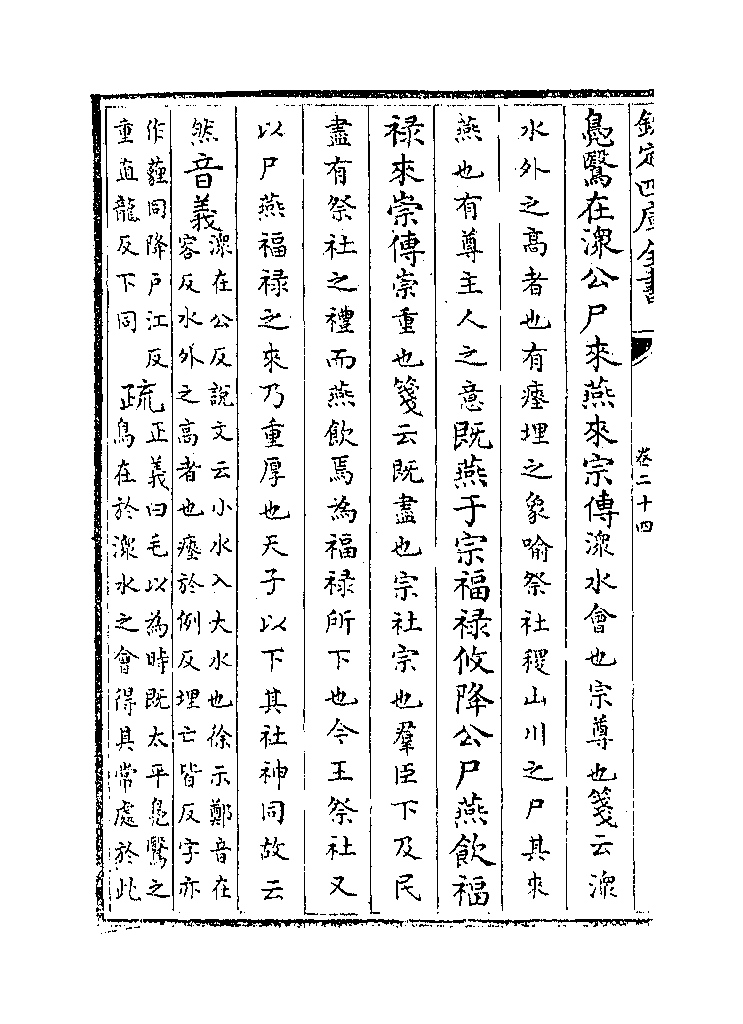 欽定四庫全書
卷二十四
鳧鷖在潀公尸來燕來宗傳潀水會也宗尊也箋云潀
水外之髙者也有瘞埋之象喻祭社稷山川之尸其來
燕也有尊主人之意既燕于宗福禄攸降公尸燕飲福
禄來崇傳崇重也箋云既盡也宗社宗也羣臣下及民
盡有祭社之禮而燕飲焉為福禄所下也今王祭社又
以尸燕福禄之來乃重厚也天子以下其社神同故云
然音義
潀在公反說文云小水入大水也徐示鄭音在
容反水外之高者也瘞於例反埋亡皆反字亦
作薶同降户江反
重直龍反下同
疏
正義曰毛以為時既太平鳧鷖之
鳥在於潀水之會得其常處於此